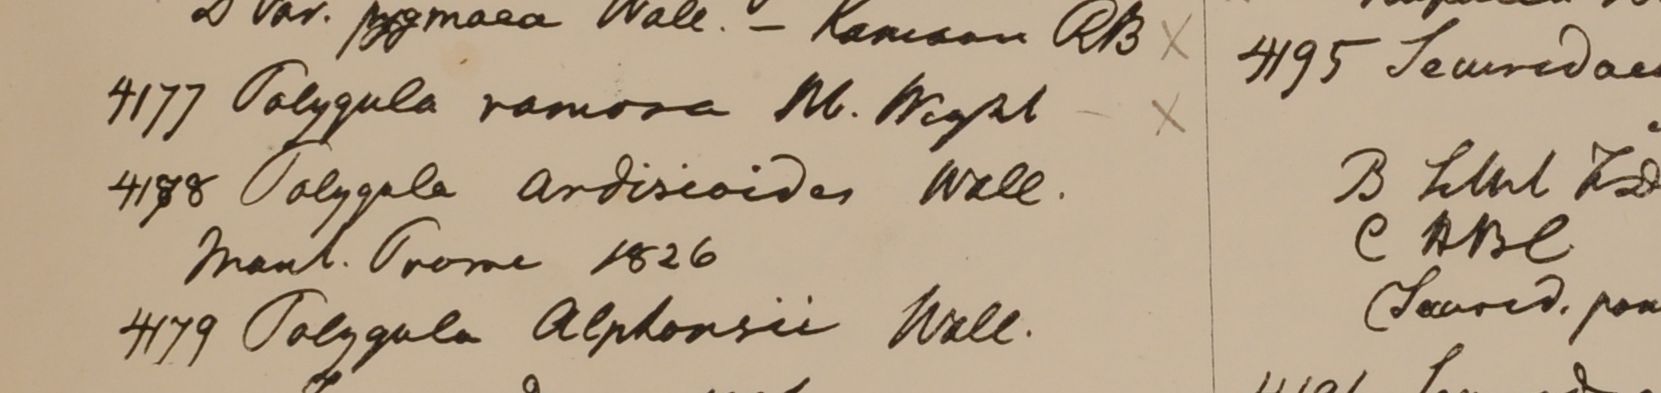 D Var. pygmaea Wall. – Kamaon RB X
4177 Polygula ramosa M. Wight – X
4178 Polygala Ardisioides Wall.
Mont. Prome 1826
4179 Polygula Alphonsii Wall.
4195 Securidaca
B
C HBC
(Securid.